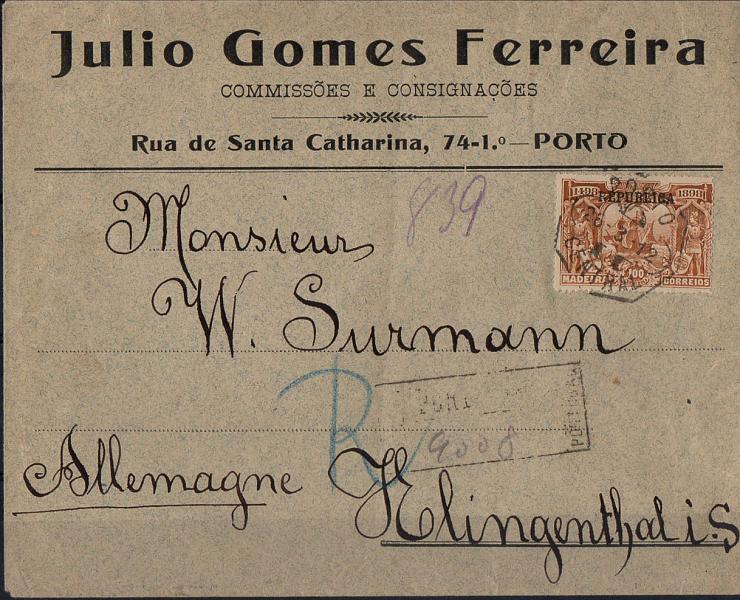 Julio Gomes Ferreira
COMMISSÕES E CONSIGNAÇÕES
Rua de Santa Catharina, 74-1.º — PORTO
839
1498 1898
REPUBLICA
100
MADEIRA CORREIOS
PORTO
CENTRAL
Monsieur
W. Surmann
R
PORTUGAL
9008
Allemagne
Klingenthal i. S